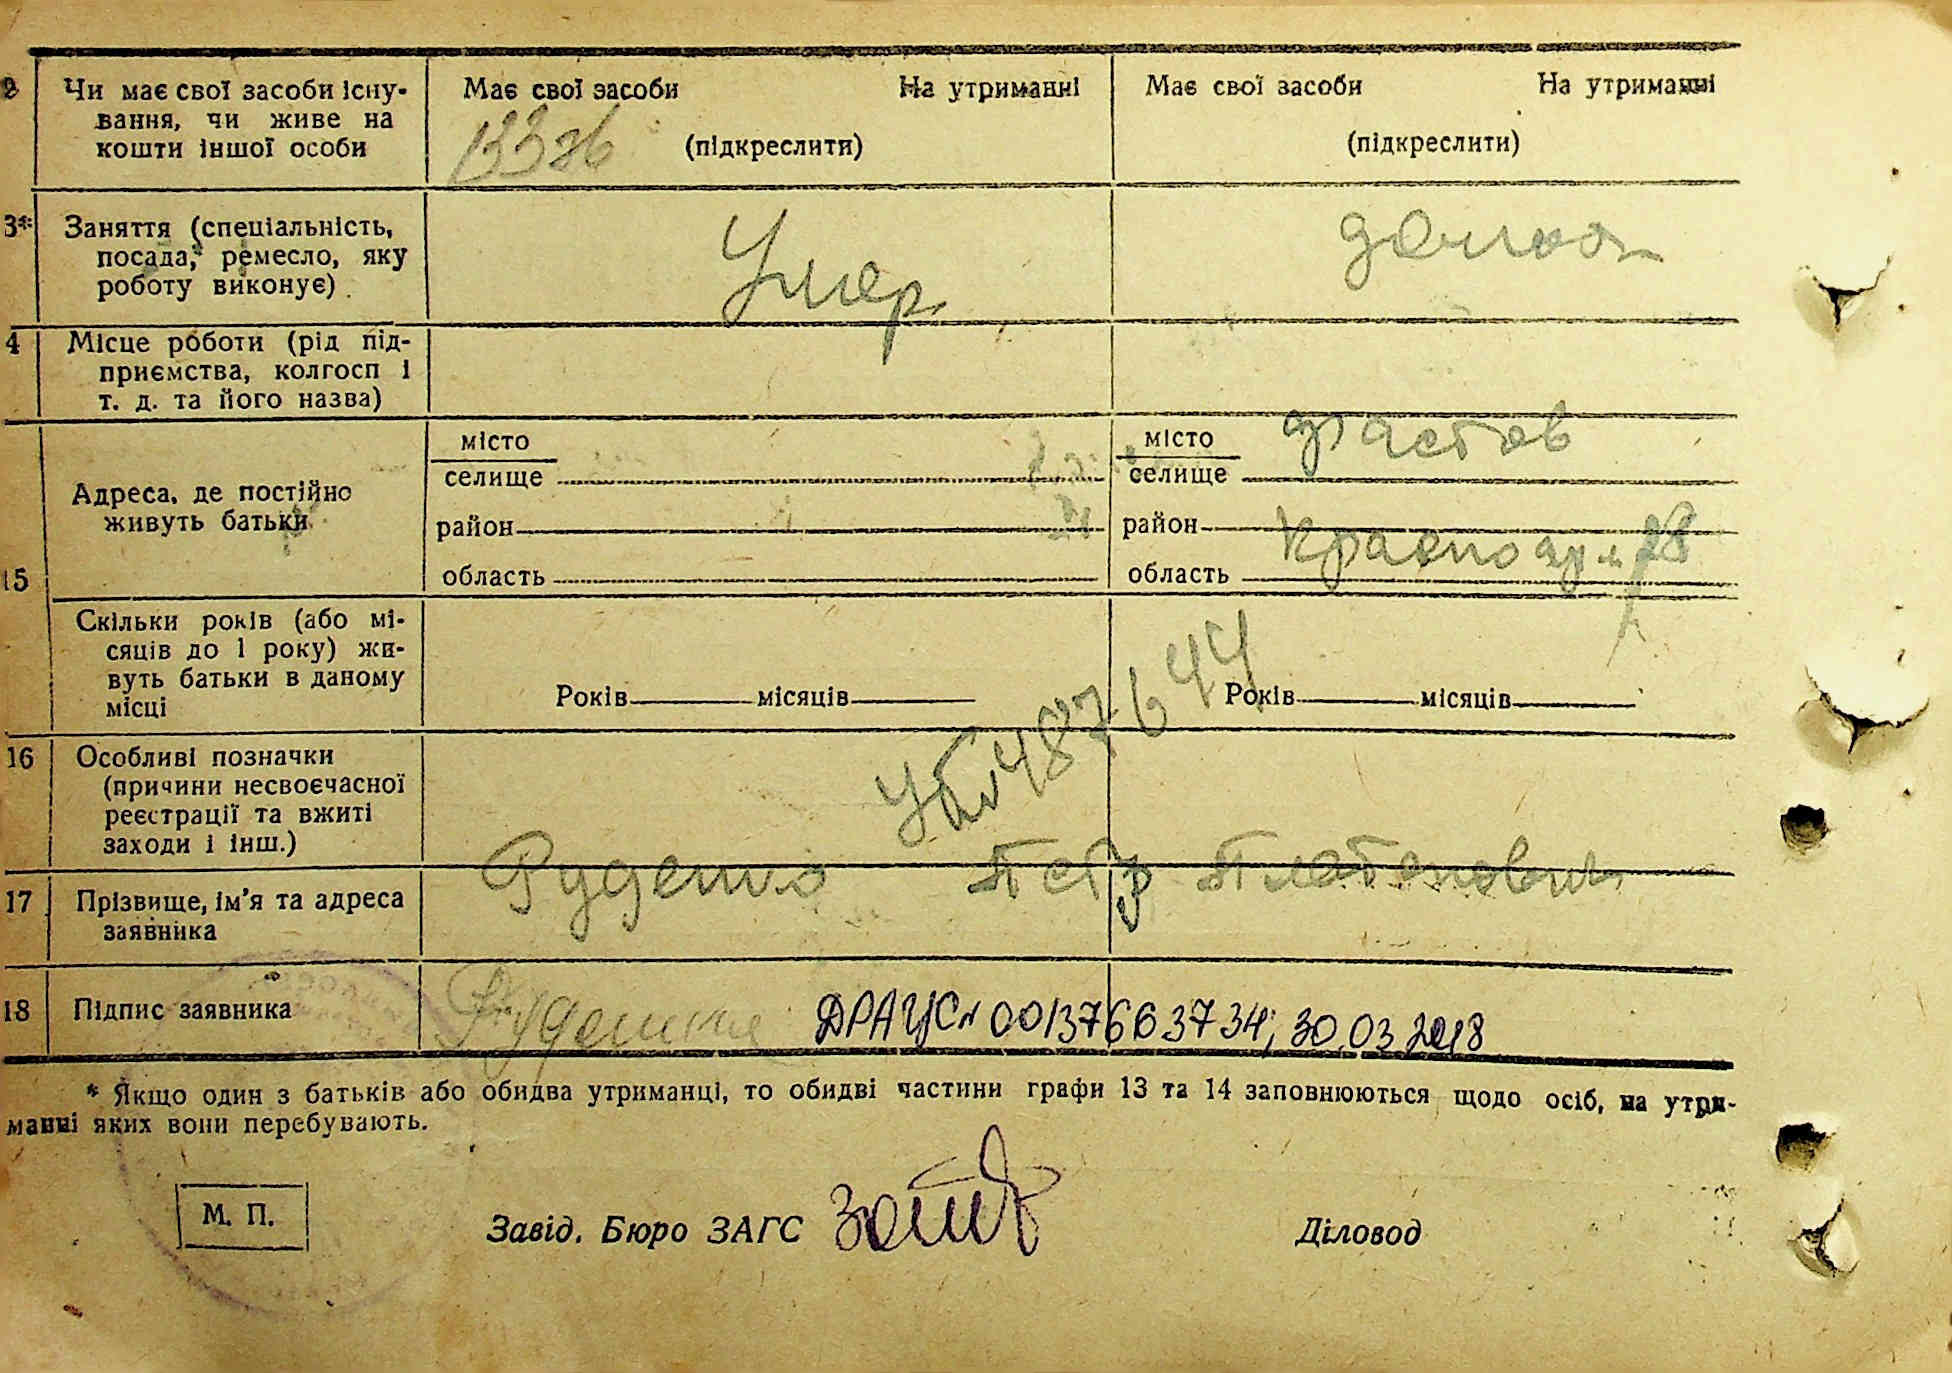 2
Чи має свої засоби існу-
вання, чи живе на
кошти іншої особи
Має свої засоби На утриманні
(підкреслити)
Має свої засоби На утриманні
(підкреслити)
3*
Заняття (спеціальність,
посада, ремесло, яку
роботу виконує)
Умер
4
Місце роботи (рід під-
приємства, колгосп і
т. д. та його назва)
15
Адреса, де постійно
живуть батьки
місто
селище
район
область
місто Фастов
селище
район
область
28
Скільки років (або мі-
сяців до 1 року) жи-
вуть батьки в даному
місці
Років місяців
Років місяців
16
Особливі позначки
(причини несвоєчасної
реєстрації та вжиті
заходи і інш.)
487644
17
Прізвище, ім'я та адреса
заявника
Руденко Петр Платонович
18
Підпис заявника
Руденко ДРАЦС№ 00137663734; 30.03.2018
* Якщо один з батьків або обидва утриманці, то обидві частини графи 13 та 14 заповнюються щодо осіб, на утри-
манні яких вони перебувають.
М. П.
Завід. Бюро ЗАГС
Діловод